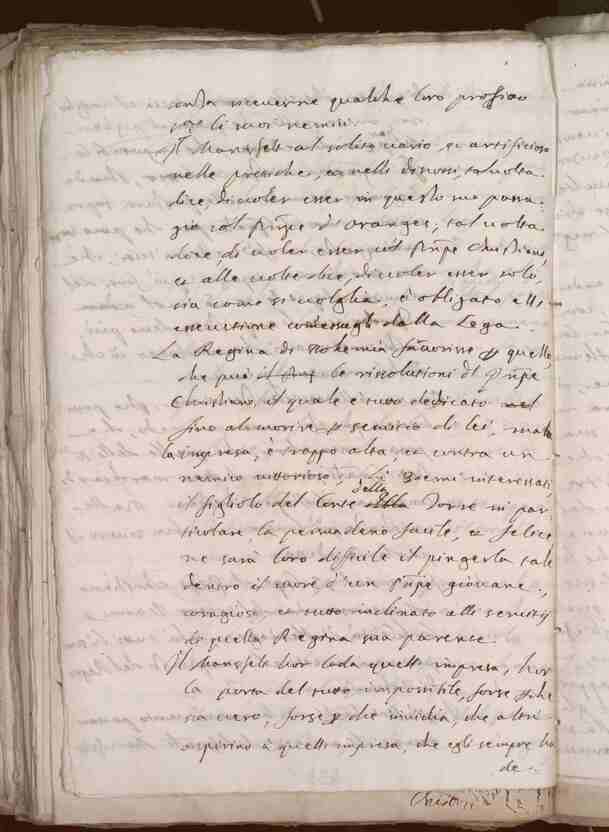 senza riceverne qualche loro profitto
li suoi nemici.
Il Mansfelt al solito vario, et artificioso
nelle pratiche, et nelli discorsi, tal volta
dice, di voler esser in questo suo passa
gio col Prñpe d'Oranges, tal volta
dice, di voler esser col Prñpe Christiano,
et alle volte dice, di voler esser solo,
sia come si voglia, è obligato alla
essecutione dalla Lega.
La Regina di Bohemia favorisse quelle,
che può le rissolutioni dl Prñpe
Christiano, il quale è tutto dedicato
fino al morire servitio di lei, ma
la impresa, è troppo alta, et contra un
nemico vittorioso, Li Boemi interessati,
il figliolo del Conte della Torre in par
ticolare, la persuadeno facile, et felice
ne sarà loro difficile il pingerla tale
dentro il cuore d'un Prñpe giovane,
coragioso, et tutto inclinato alli servitij
di quella Regina sua parente.
Il Mansfelt hor loda questa impresa, hor
la porta del tutto impossibile, forse che
sia vero, forse che invidia, che altri
aspirino à questa impresa, che egli sempre ha
de